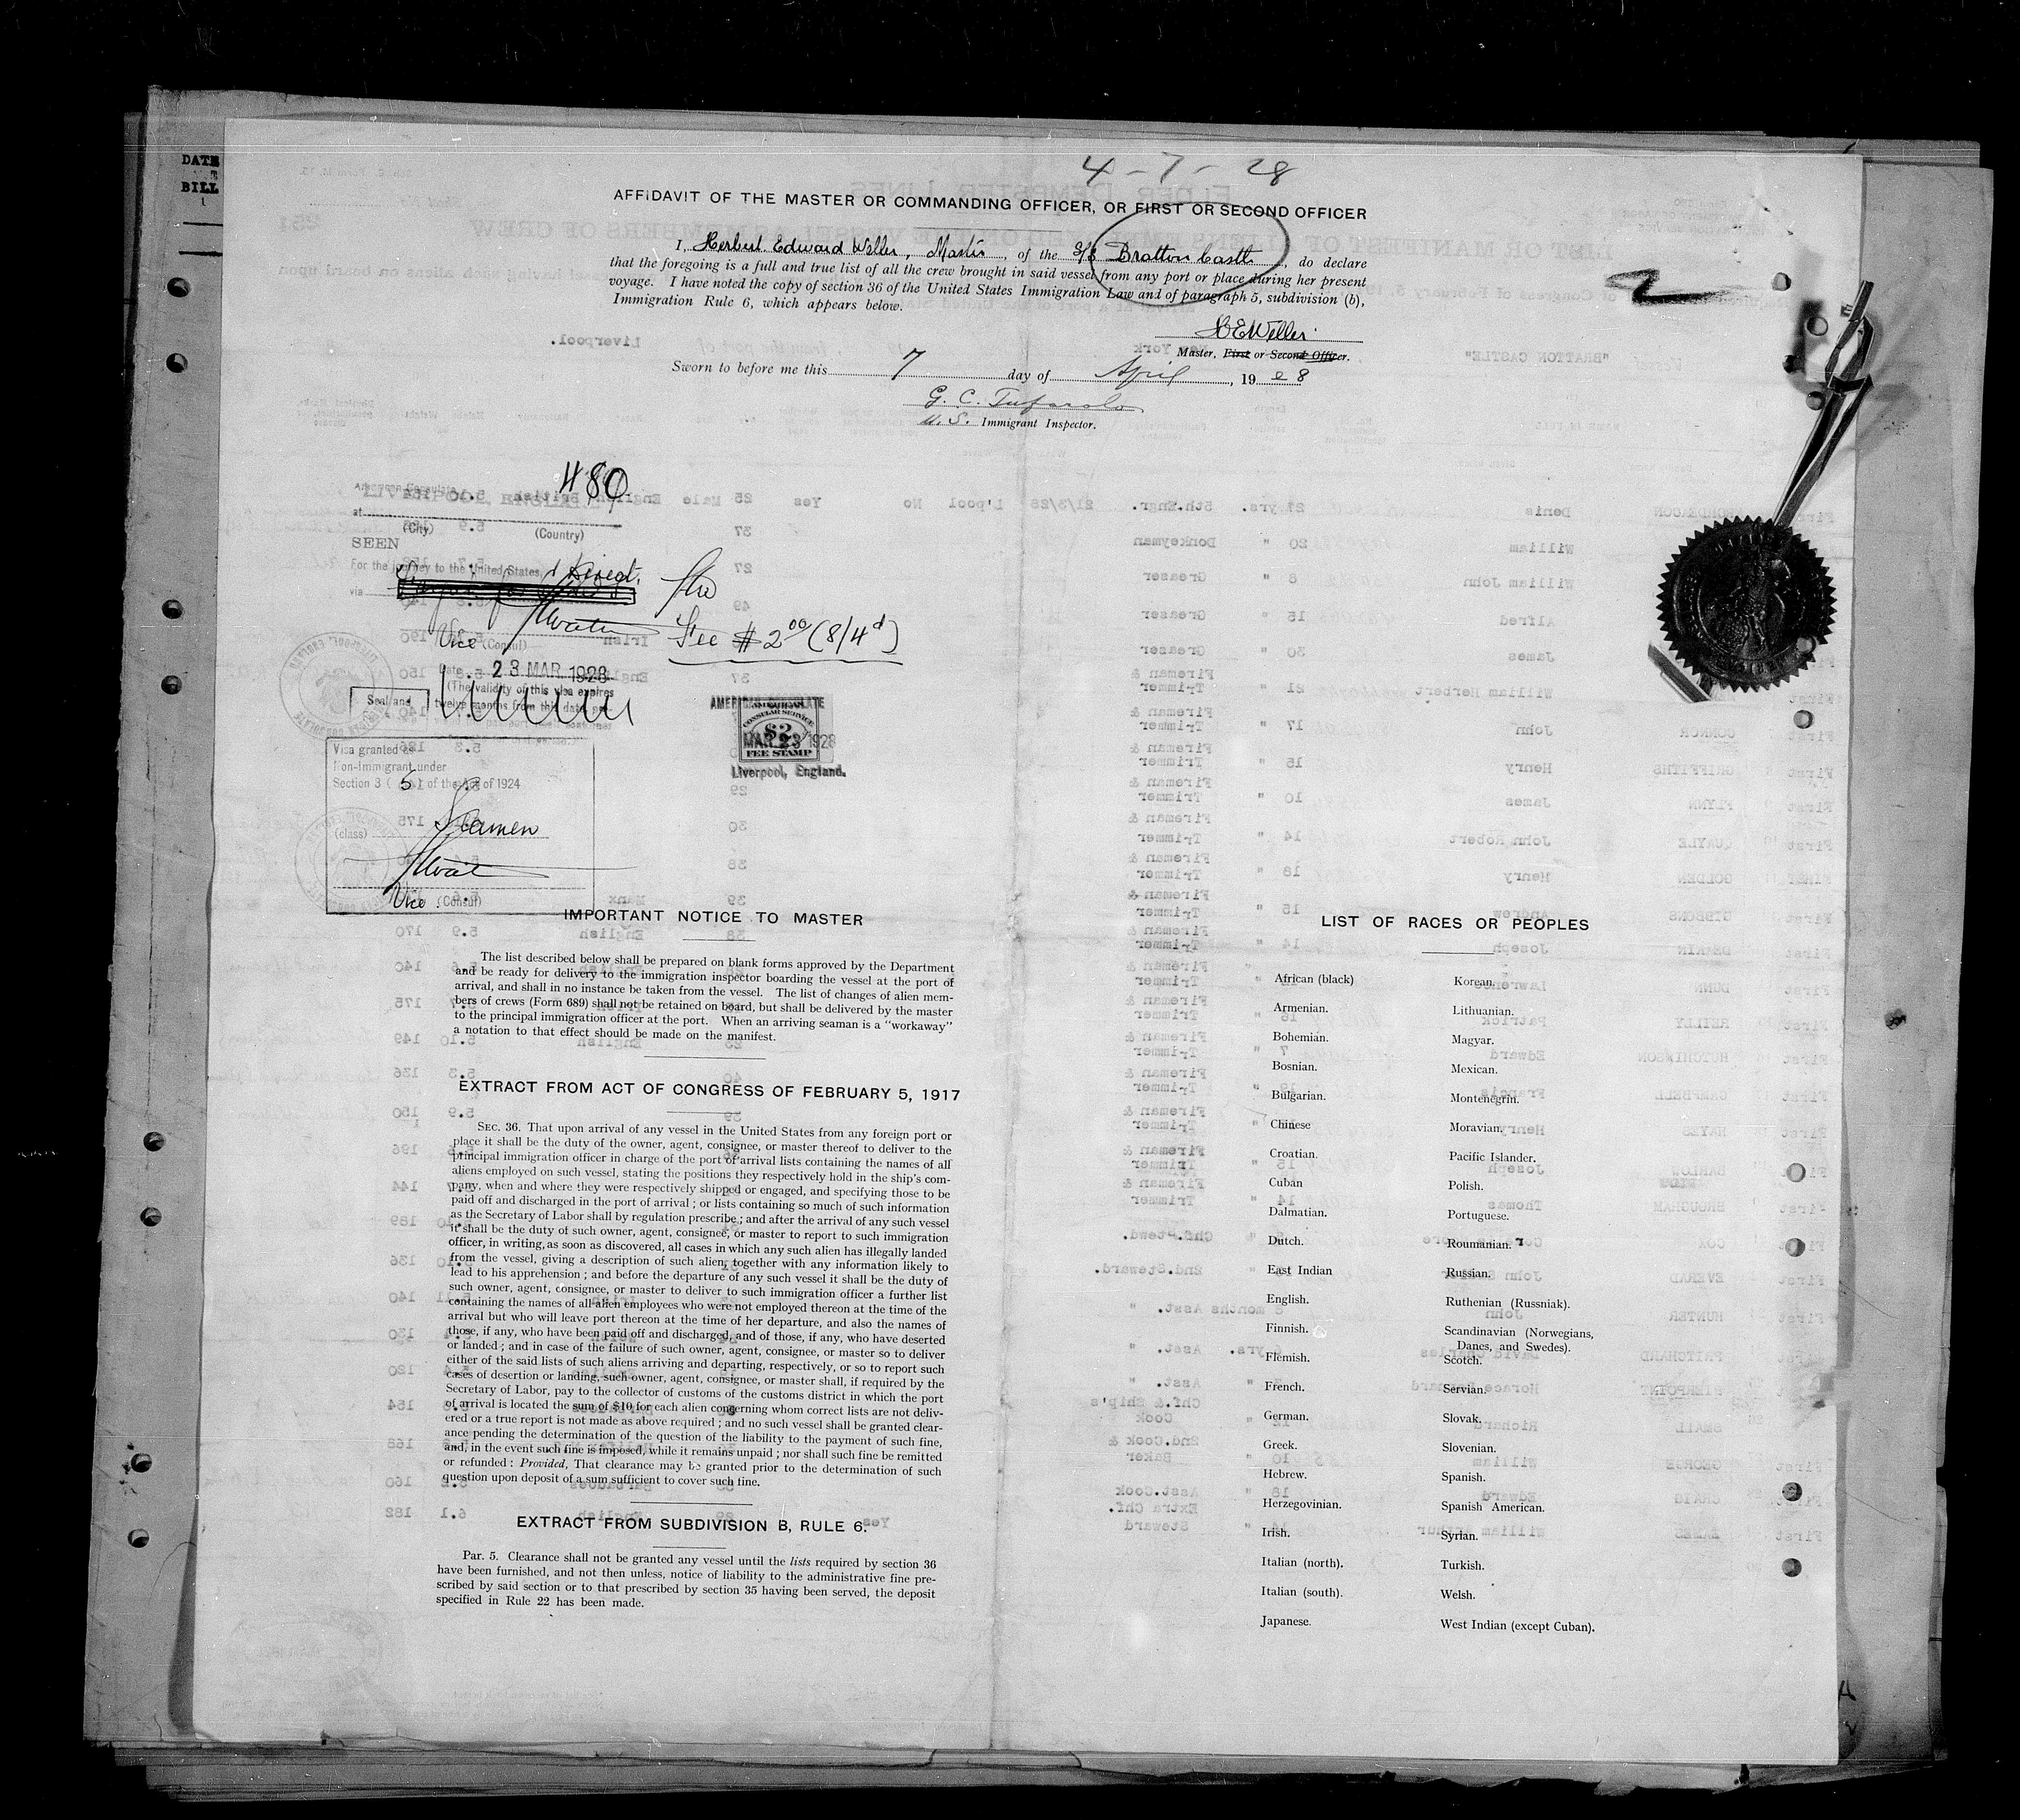 DATE
BILL
4-7-28
AFFIDAVIT OF THE MASTER OR COMMANDING OFFICER, OR FIRST OR SECOND OFFICER
I, Herbert Edward Weller, Master, of the S/S Bratton Castle, do declare
that the foregoing is a full and true list of all the crew brought in said vessel from any port or place during her present
voyage. I have noted the copy of section 36 of the United States Immigration Law and of paragraph 5, subdivision (b),
Immigration Rule 6, which appears below.
H E Weller
Master, First or Second Officer.
Sworn to before me this 7 day of April, 1928
G. C. Tufarolo
U.S. Immigrant Inspector.
480
American Consulate
at
(City) (Country)
SEEN
For the journey to the United States,
via direct.
Vice (Consul)
Fee $2.00 (8/4d)
Date 23 MAR 1928
(The validity of this visa expires
twelve months from this date
Seal and
AMERICAN CONSULATE
CONSULAR SERVICE
$2
MAR 23 1928
FEE STAMP
Liverpool, England.
Visa granted as
Non-Immigrant under
Section 3 (5) of the Act of 1924
(class) Seamen
Vice (Consul)
IMPORTANT NOTICE TO MASTER
The list described below shall be prepared on blank forms approved by the Department
and be ready for delivery to the immigration inspector boarding the vessel at the port of
arrival, and shall in no instance be taken from the vessel. The list of changes of alien mem-
bers of crews (Form 689) shall not be retained on board, but shall be delivered by the master
to the principal immigration officer at the port. When an arriving seaman is a "workaway"
a notation to that effect should be made on the manifest.
EXTRACT FROM ACT OF CONGRESS OF FEBRUARY 5, 1917
SEC. 36. That upon arrival of any vessel in the United States from any foreign port or
place it shall be the duty of the owner, agent, consignee, or master thereof to deliver to the
principal immigration officer in charge of the port of arrival lists containing the names of all
aliens employed on such vessel, stating the positions they respectively hold in the ship's com-
pany, when and where they were respectively shipped or engaged, and specifying those to be
paid off and discharged in the port of arrival; or lists containing so much of such information
as the Secretary of Labor shall by regulation prescribe; and after the arrival of any such vessel
it shall be the duty of such owner, agent, consignee, or master to report to such immigration
officer, in writing, as soon as discovered, all cases in which any such alien has illegally landed
from the vessel, giving a description of such alien, together with any information likely to
lead to his apprehension; and before the departure of any such vessel it shall be the duty of
such owner, agent, consignee, or master to deliver to such immigration officer a further list
containing the names of all alien employees who were not employed thereon at the time of the
arrival but who will leave port thereon at the time of her departure, and also the names of
those, if any, who have been paid off and discharged, and of those, if any, who have deserted
or landed; and in case of the failure of such owner, agent, consignee, or master so to deliver
either of the said lists of such aliens arriving and departing, respectively, or so to report such
cases of desertion or landing, such owner, agent, consignee, or master shall, if required by the
Secretary of Labor, pay to the collector of customs of the customs district in which the port
of arrival is located the sum of $10 for each alien concerning whom correct lists are not deliv-
ered or a true report is not made as above required; and no such vessel shall be granted clear-
ance pending the determination of the question of the liability to the payment of such fine,
and, in the event such fine is imposed, while it remains unpaid; nor shall such fine be remitted
or refunded: Provided, That clearance may be granted prior to the determination of such
question upon deposit of a sum sufficient to cover such fine.
EXTRACT FROM SUBDIVISION B, RULE 6.
Par. 5. Clearance shall not be granted any vessel until the lists required by section 36
have been furnished, and not then unless, notice of liability to the administrative fine pre-
scribed by said section or to that prescribed by section 35 having been served, the deposit
specified in Rule 22 has been made.
LIST OF RACES OR PEOPLES
African (black)
Armenian.
Bohemian.
Bosnian.
Bulgarian.
Chinese
Croatian.
Cuban
Dalmatian.
Dutch.
East Indian
English.
Finnish.
Flemish.
French.
German.
Greek.
Hebrew.
Herzegovinian.
Irish.
Italian (north).
Italian (south).
Japanese.
Korean.
Lithuanian.
Magyar.
Mexican.
Montenegrin.
Moravian.
Pacific Islander.
Polish.
Portuguese.
Roumanian.
Russian.
Ruthenian (Russniak).
Scandinavian (Norwegians,
Danes, and Swedes).
Scotch.
Servian.
Slovak.
Slovenian.
Spanish.
Spanish American.
Syrian.
Turkish.
Welsh.
West Indian (except Cuban).